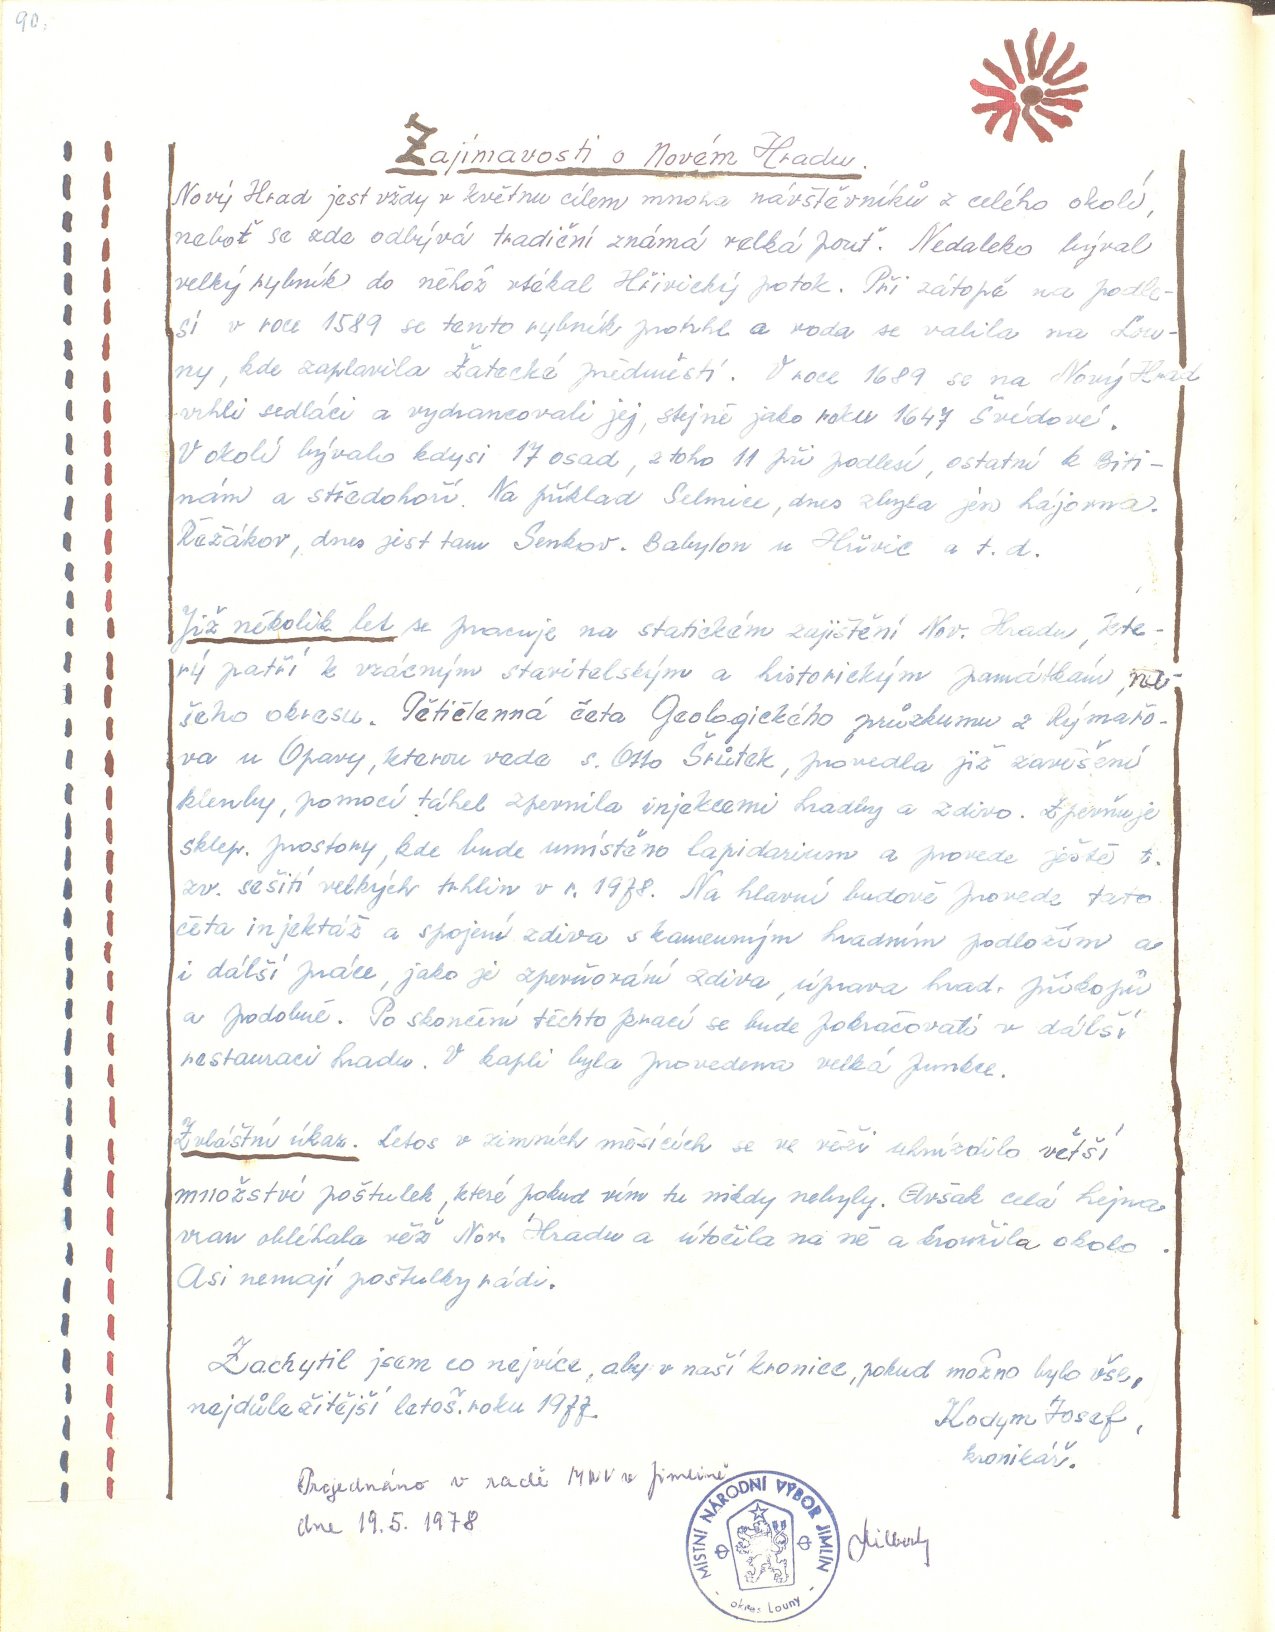 90.
Zajímavosti o Novém Hradu.
Nový Hrad jest vždy v květnu cílem mnoha návštěvníků z celého okolí,
neboť se zde odbývá tradiční známá velká pouť. Nedaleko býval
velký rybník do něhož vtékal Hřivický potok. Při zátopě na podle-
sí v roce 1589 se tento rybník protrhl a voda se valila na Lou-
ny, kde zaplavila Žatecké předměstí. V roce 1689 se na Nový Hrad
vrhli sedláci a vydrancovali jej, stejně jako roku 1647 Švédové.
V okolí bývalo kdysi 17 osad, z toho 11 při podlesí, ostatní k Biti-
nám a středohoří. Na příklad Selmice, dnes zbyla jen hájovna.
Řežákov, dnes jest tam Senkov. Babylon u Hřivic a t. d.
Již několik let se pracuje na statickém zajištění Nov. Hradu, kte-
rý patří k vzácným stavitelským a historickým památkám, na-
šeho okresu. Pětičlenná četa Geologického průzkumu z Rýmařo-
va u Opavy, kterou vede s. Otto Šrůtek, provedla již zavěšení
klenby, pomocí táhel zpevnila injekcemi hradby a zdivo. Zpevňuje
sklep. prostory, kde bude umístěno lapidarium a provede ještě t.
zv. sešití velkých trhlin v r. 1978. Na hlavní budově provede tato
četa injektáž a spojení zdiva s kamenným hradním podložím a
i dálší práce, jako je zpevňování zdiva, úprava hrad. příkopů
a podobně. Po skončení těchto prací se bude pokračovati v dálší
restauraci hradu. V kapli byla provedena velká funkce.
Zvláštní úkaz. Letos v zimních měsících se ve věži uhnízdilo větší
množství poštulek, které pokud vím tu nikdy nebyly. Avšak celá hejna
vran obléhala věž Nov. Hradu a útočila na ně a kroužila okolo.
Asi nemají poštulky rádi.
Zachytil jsem co nejvíce, aby v naší kronice, pokud možno bylo vše,
nejdůležitější letoš. roku 1977.
Kodym Josef,
kronikář.
Projednáno v radě MNV v Jimlíně
dne 19.5. 1978
MÍSTNÍ NÁRODNÍ VÝBOR JIMLÍN
okres Louny